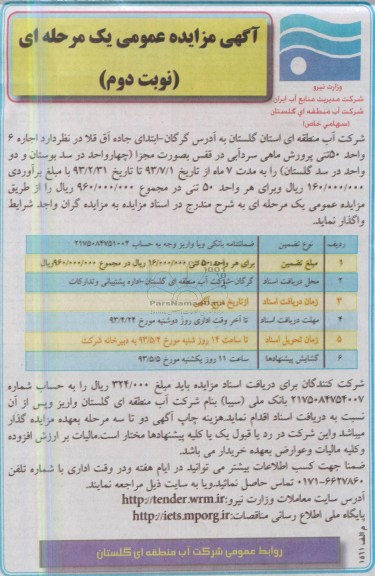 آگهی مزایده عمومی یک مرحله ای
(نوبت دوم)
وزارت نیرو
شرکت مدیریت منابع آب ایران
شرکت آب منطقه ای گلستان
(سهامی خاص)
شرکت آب منطقه ای استان گلستان به آدرس گرگان-ابتدای جاده آق قلا در نظردارد اجاره ۶
واحد ۵۰تنی پرورش ماهی سردآبی در قفس بصورت مجزا (چهارواحد در سد بوستان و دو
واحد در سد گلستان) را به مدت ۷ ماه از تاریخ ۹۳/۷/۱ تا تاریخ ۹۴/۲/۳۱ با مبلغ برآوردی
۱۶۰/۰۰۰/۰۰۰ ریال وبرای هر واحد ۵۰ تنی در مجموع ۹۶۰/۰۰۰/۰۰۰ ریال را از طریق
مزایده عمومی یک مرحله ای به شرح مندرج در اسناد مزایده به مزایده گران واجد شرایط
واگذار نماید.
ردیف نوع تضمین ضمانتنامه بانکی ویا واریز وجه به حساب ۲۱۷۵۰۸۴۷۵۱۰۰۲
۱ مبلغ تضمین برای هر واحد ۵۰ تنی ۱۶/۰۰۰/۰۰۰ ریال در مجموع ۹۶/۰۰۰/۰۰۰ریال
۲ محل دریافت اسناد گرگان-شرکت آب منطقه ای گلستان-اداره پشتیبانی وتدارکات
۳ زمان دریافت اسناد ازتاریخ درج آگهی
۴ مهلت دریافت اسناد تا آخر وقت اداری روز دوشنبه مورخ ۹۳/۴/۲۳
۵ زمان تحویل اسناد تا ساعت ۱۴ روز شنبه مورخ ۹۳/۵/۴ به دبیرخانه شرکت
۶ گشایش پیشنهادها ساعت ۱۱ روز یکشنبه مورخ ۹۳/۵/۵
ParsNamadData
شرکت کنندگان برای دریافت اسناد مزایده باید مبلغ ۳۲۴/۰۰۰ ریال را به حساب شماره
۲۱۷۵۰۸۴۷۵۴۰۰۷ بانک ملی (سیبا) بنام شرکت آب منطقه ای گلستان واریز وپس از آن
نسبت به دریافت اسناد اقدام نماید.هزینه چاپ آگهی دو تا سه مرحله بعهده مزایده گذار
میباشد واین شرکت در رد یا قبول یک یا کلیه پیشنهادها مختار است.مالیات بر ارزش افزوده
وکلیه مالیات وعوارض بعهده خریدار می باشد.
ضمنا جهت کسب اطلاعات بیشتر می توانید در ایام هفته ودر وقت اداری با شماره تلفن
۰۱۷۱-۶۶۲۷۸۶۰ تماس حاصل نمائید.ویا به سایت ذیل مراجعه نمایند.
آدرس سایت معاملات وزارت نیرو:http://tender.wrm.ir
پایگاه ملی اطلاع رسانی مناقصات:http://iets.mporg.ir
روابط عمومی شرکت آب منطقه ای گلستان
م الف ۱۵۱۱